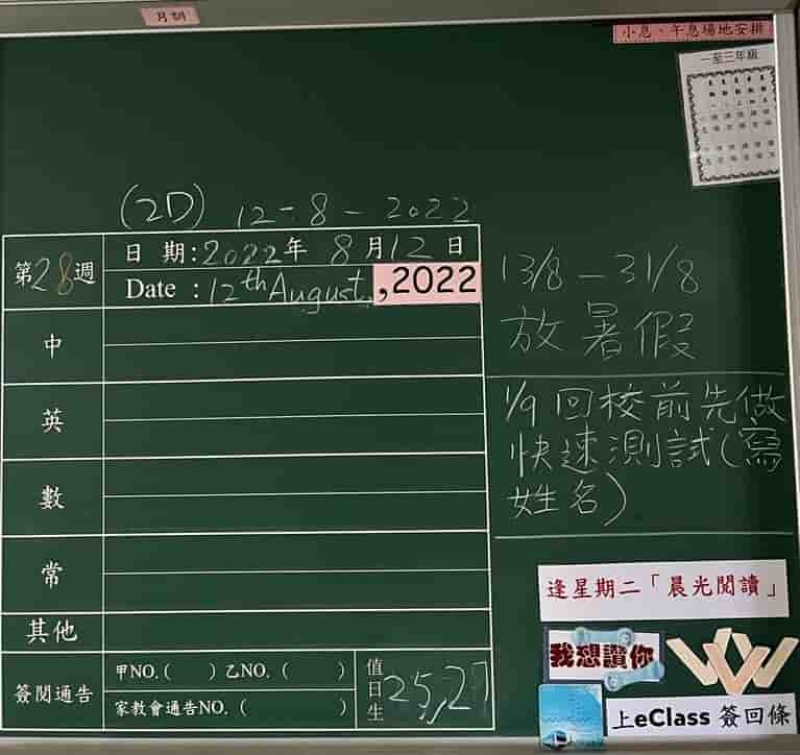 月訓
小息、午息場地安排
一至三年級
(2D) 12-8-2022
第28週
日 期:2022年 8月12日
Date :12th August,2022
13/8-31/8
放暑假
中
英
1/9回校前先做
快速測試(寫
姓名)
數
常
逢星期二「晨光閱讀」
其他
我想讚你
簽閱通告
甲NO.( )乙NO.( )
家教會通告NO.( )
值日生
25,27
上eClass 簽回條